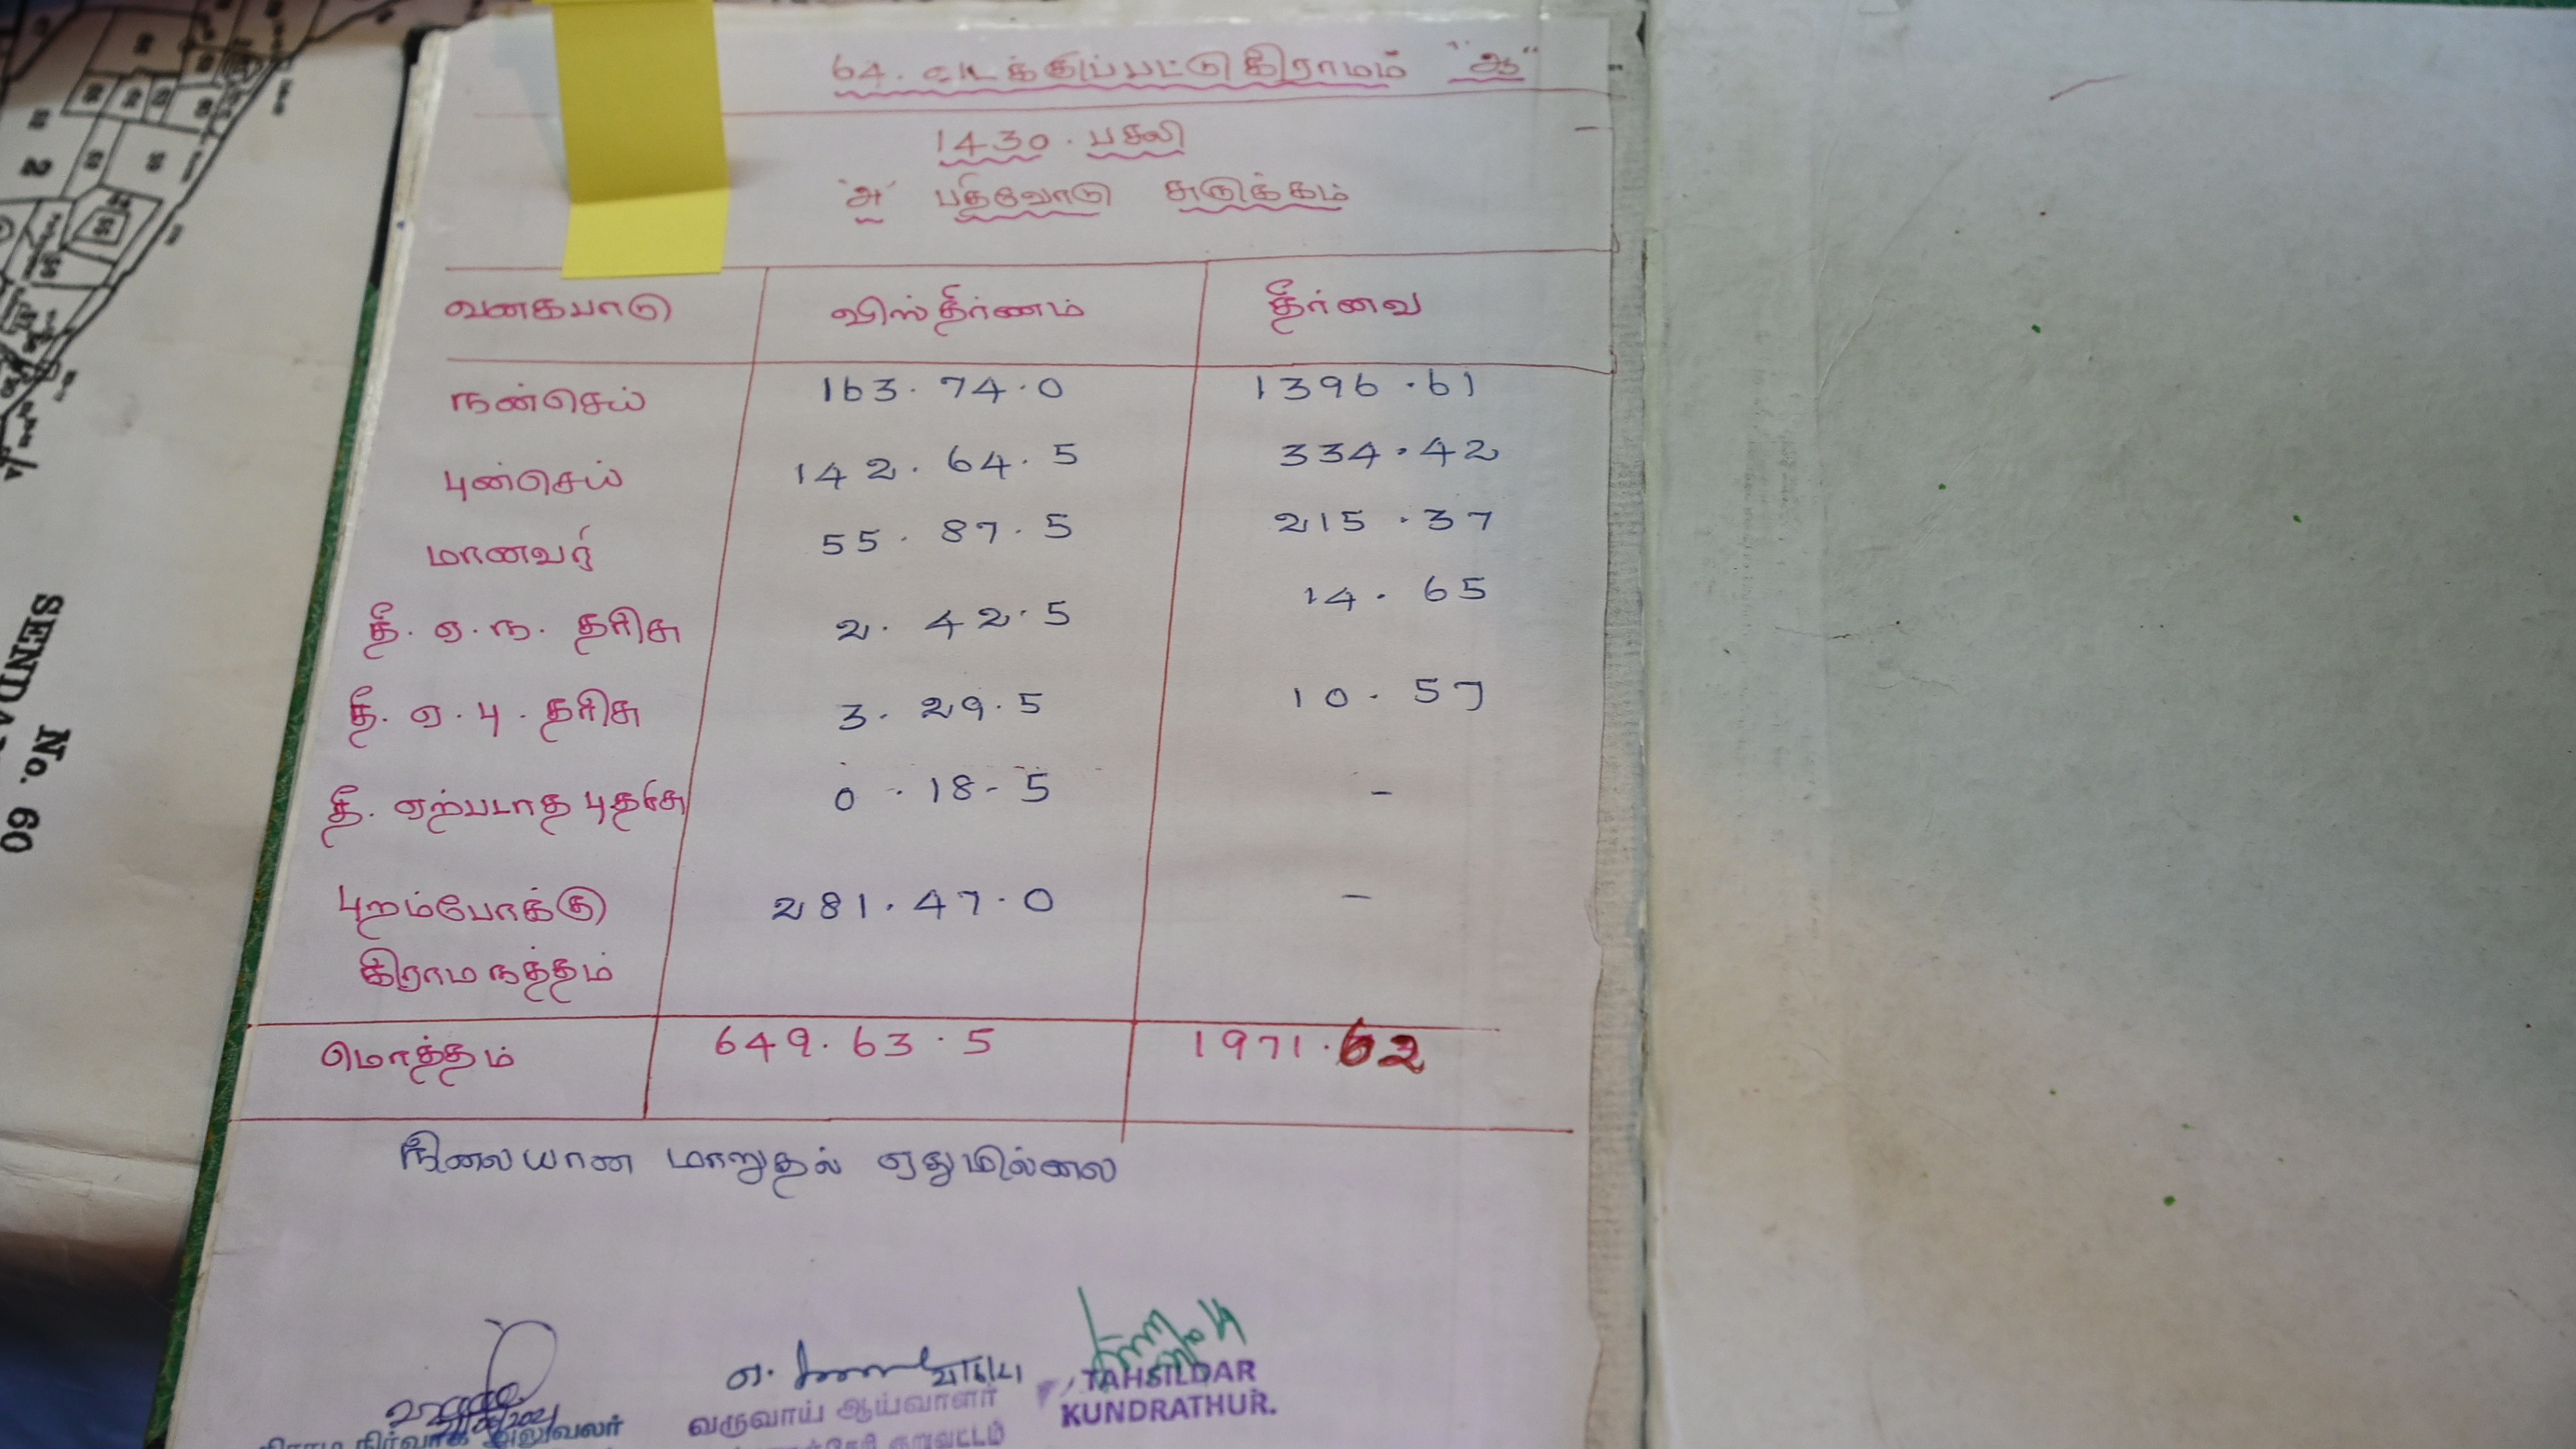 64. வடக்குப்பட்டு கிராமம் "ஆ"
1430. பசலி
"அ" பதிவேடு சுருக்கம்
வகைபாடு விஸ்தீர்ணம் தீர்வை
நன்செய் 163.74.0 1396.61
புன்செய் 142.64.5 334.42
மானவரி 55.87.5 215.37
தீ.ஏ.ந. தரிசு 2.42.5 14.65
தீ.ஏ.பு. தரிசு 3.29.5 10.57
தீ. ஏற்படாத புதரிசு 0.18-5 -
புறம்போக்கு 281.47.0 -
கிராம நத்தம்
மொத்தம் 649.63.5 1971.62
நிலையான மாறுதல் ஏதுமில்லை
வருவாய் ஆய்வாளர்
குறுவட்டம்
TAHSILDAR
KUNDRATHUR.
கிராம நிர்வாக அலுவலர்
No. 60